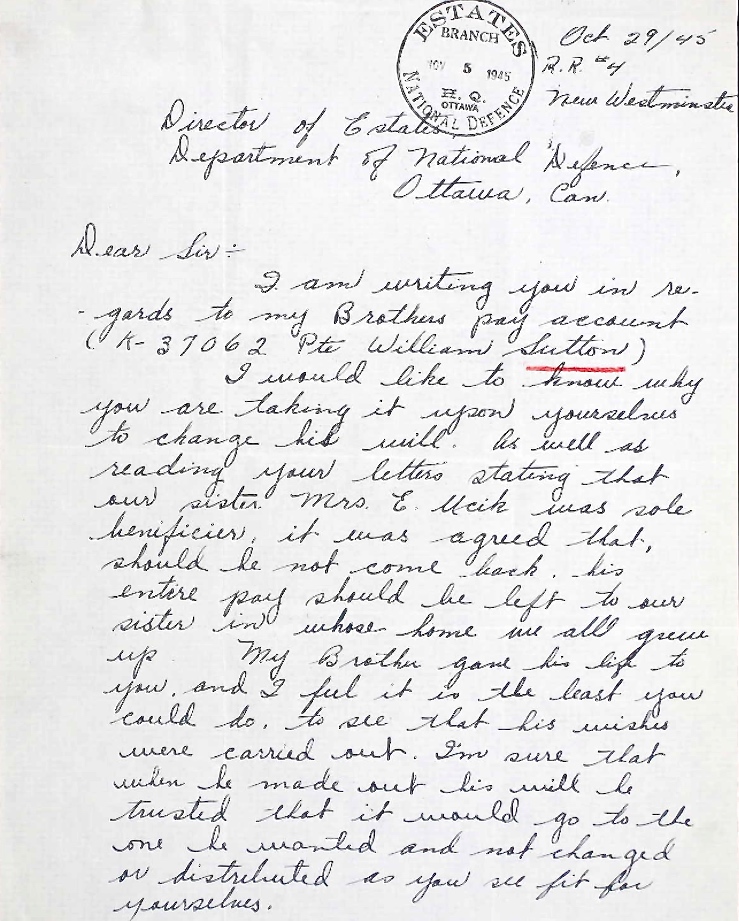 ESTATES
BRANCH
NOV 5 1945
H. Q.
OTTAWA
NATIONAL DEFENCE
Oct 29/45
R.R. #4
New Westminster
Director of Estates,
Department of National Defence,
Ottawa, Can.
Dear Sir:-
I am writing you in re-
-gards to my Brothers pay account
(K-37062 Pte William Sutton)
I would like to know why
you are taking it upon yourselves
to change his will. As well as
reading your letters stating that
our sister Mrs. E. Ucik was sole
benificier, it was agreed that,
should he not come back, his
entire pay should be left to our
sister in whose home we all grew
up. My Brother gave his life to
you, and I feel it is the least you
could do, to see that his wishes
were carried out. I'm sure that
when he made out his will he
trusted that it would go to the
one he wanted and not changed
or distributed as you see fit for
yourselves.